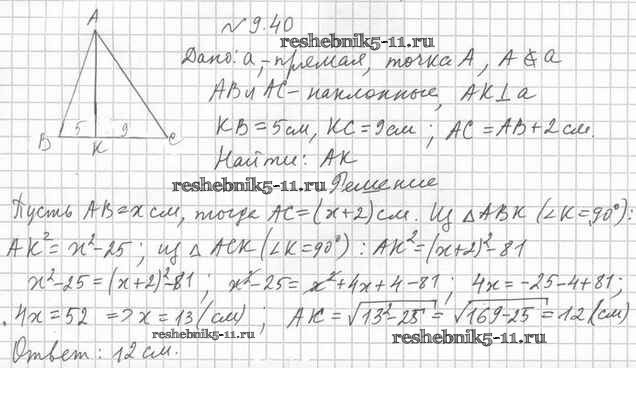 № 9.40
reshebnik5-11.ru
A
Дано: a, -прямая, точка A, A ∉ a
AB и AC - наклонные, AK⊥a
B 5 K 9 C
KB = 5 см, KC = 9 см ; AC = AB + 2 см.
Найти: AK
reshebnik5-11.ru
Решение
Пусть AB = x см, тогда AC = (x+2) см. Из △ABK (∠K=90°):
AK² = x²-25 ; из △ ACK (∠K=90°) : AK² = (x+2)²-81
x²-25 = (x+2)²-81 ; x²-25 = x²+4x+4-81 ; 4x = -25-4+81 ;
4x = 52 => x = 13 (см) ; AK = √13²-25 = √169-25 = 12 (см)
reshebnik5-11.ru
Ответ: 12 см.